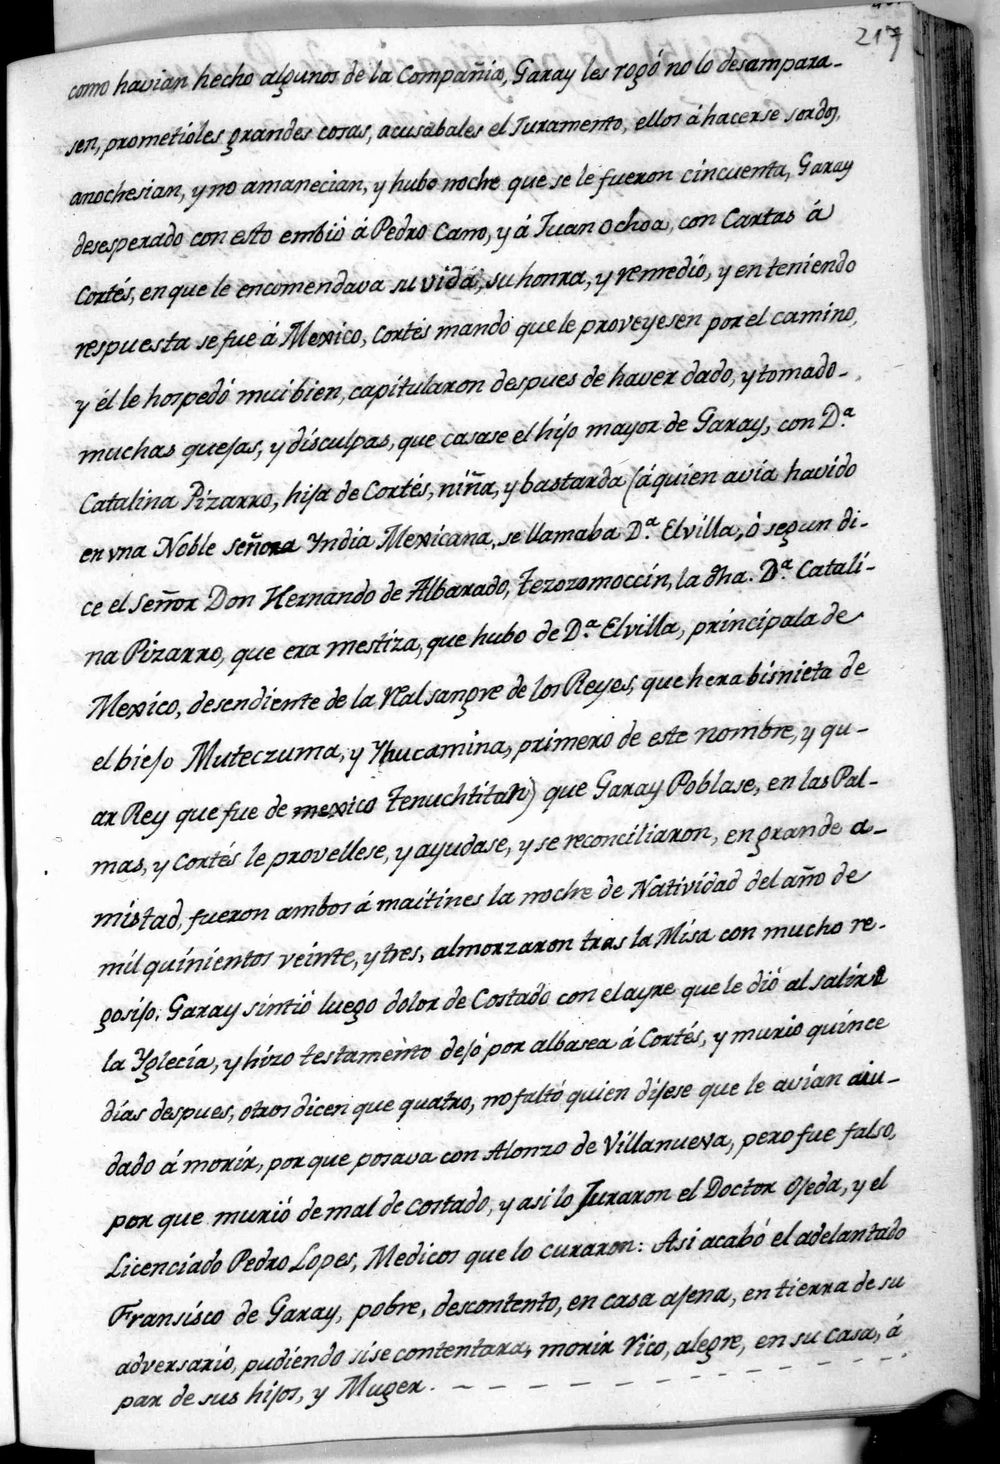 217
como havian hecho algunos de la Compañia, Garay les rogó no lo desampara-
sen, prometióles grandes cosas, acusabales el Juramento, ellos á hacerse sordos,
anochesian, y no amanecian, y hubo noche que se le fueron cincuenta, Garay
desesperado con esto embió á Pedro Cano, y á Juan Ochoa, con Cartas á
Cortés, en que le encomendava su vida, su honra, y remedio, y en teniendo
respuesta se fue á Mexico, Cortés mandó que le proveyesen por el camino,
y él le hospedó mui bien, capitularon despues de haver dado, y tomado-
muchas quejas, y disculpas, que casase el hijo mayor de Garay, con D.ª
Catalina Pizarro, hija de Cortés, niña, y bastarda (á quien avia havido
en vna Noble Señora Yndia Mexicana, se llamaba D.ª Elvilla, ó segun di-
ce el Señor Don Hernando de Albarado, Tezozomoccin, la dha. D.ª Catali-
na Pizarro, que era mestiza, que hubo de D.ª Elvilla, principala de
Mexico, desendiente de la Real sangre de los Reyes, que hera bisnieta de
el biejo Muteczuma, y Yhucamina, primero de este nombre, y qu-
ar Rey que fue de mexico Tenuchtitan) que Garay Poblase, en las Pal-
mas, y Cortés le provellese, y ayudase, y se reconciliaron, en grande a-
mistad, fueron ambos á maitines la noche de Natividad del año de
mil quinientos veinte, y tres, almorzaron tras la Misa con mucho re-
gosijo. Garay sintió luego dolor de Costado con el ayre que le dió al salir de
la Yglecia, y hizo testamento dejó por albasea á Cortés, y murio quince
dias despues, otros dicen que quatro, no faltó quien dijese que le avian aiu-
dado á morir, por que posava con Alonzo de Villanueva, pero fue falso,
por que murió de mal de costado, y asi lo Juraron el Doctor Ojeda, y el
Licenciado Pedro Lopes, Medicos que lo curaron: Asi acabó el adelantado
Fransisco de Garay, pobre, descontento, en casa ajena, en tierra de su
adversario, pudiendo si se contentara, morir rico, alegre, en su casa, á
par de sus hijos, y Muger. - - - - - - - - - - -